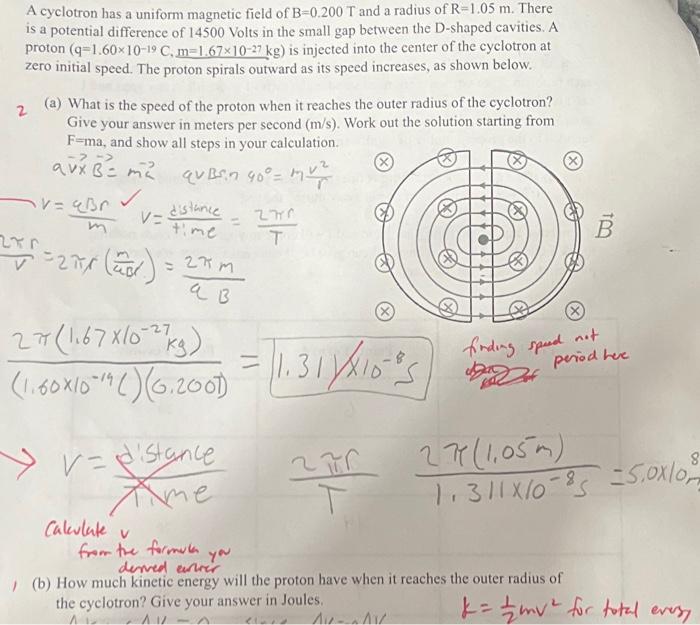 A cyclotron has a uniform magnetic field of B=0.200 T and a radius of R=1.05 m. There
is a potential difference of 14500 Volts in the small gap between the D-shaped cavities. A
proton (q=1.60×10⁻¹⁹ C, m=1.67×10⁻²⁷ kg) is injected into the center of the cyclotron at
zero initial speed. The proton spirals outward as its speed increases, as shown below.
2 (a) What is the speed of the proton when it reaches the outer radius of the cyclotron?
Give your answer in meters per second (m/s). Work out the solution starting from
F=ma, and show all steps in your calculation.
qv⃗×B⃗=ma⃗ qvBsin90°=m v²/r
v=qBr/m ✓ v=distance/time = 2πr/T
B⃗
2πr/v =2πr(m/qBr) = 2πm/qB
2π(1.67×10⁻²⁷kg)/(1.60×10⁻¹⁹C)(0.200T) = 1.311×10⁻⁸s
finding speed not
period here
v=distance/Time 2πr/T 2π(1.05m)/1.311×10⁻⁸s =5.0×10⁸ m
Calculate v
from the formula you
derived earlier
1 (b) How much kinetic energy will the proton have when it reaches the outer radius of
the cyclotron? Give your answer in Joules.
k=½mv² for total energy